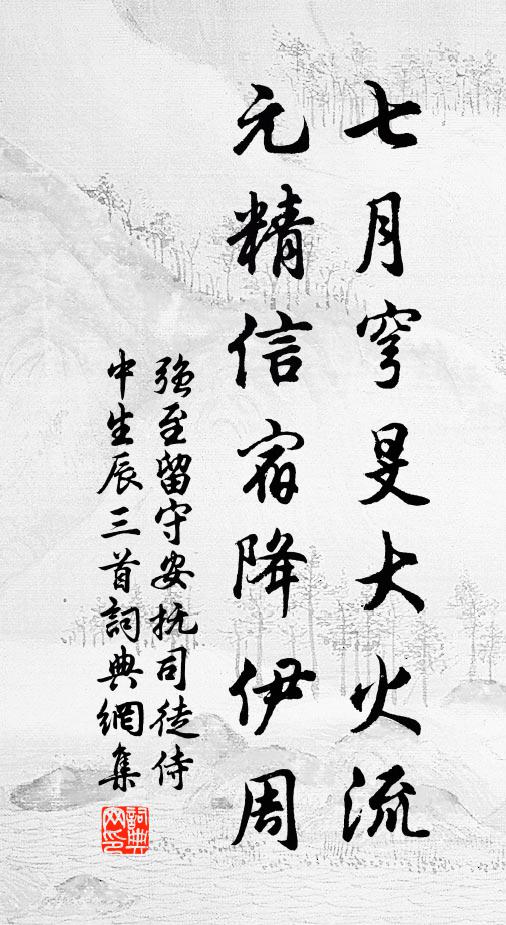 七月穹旻大火流
元精信宿降伊周
强至留守安抚司徒侍
中生辰三首詞典網集
詞典网印